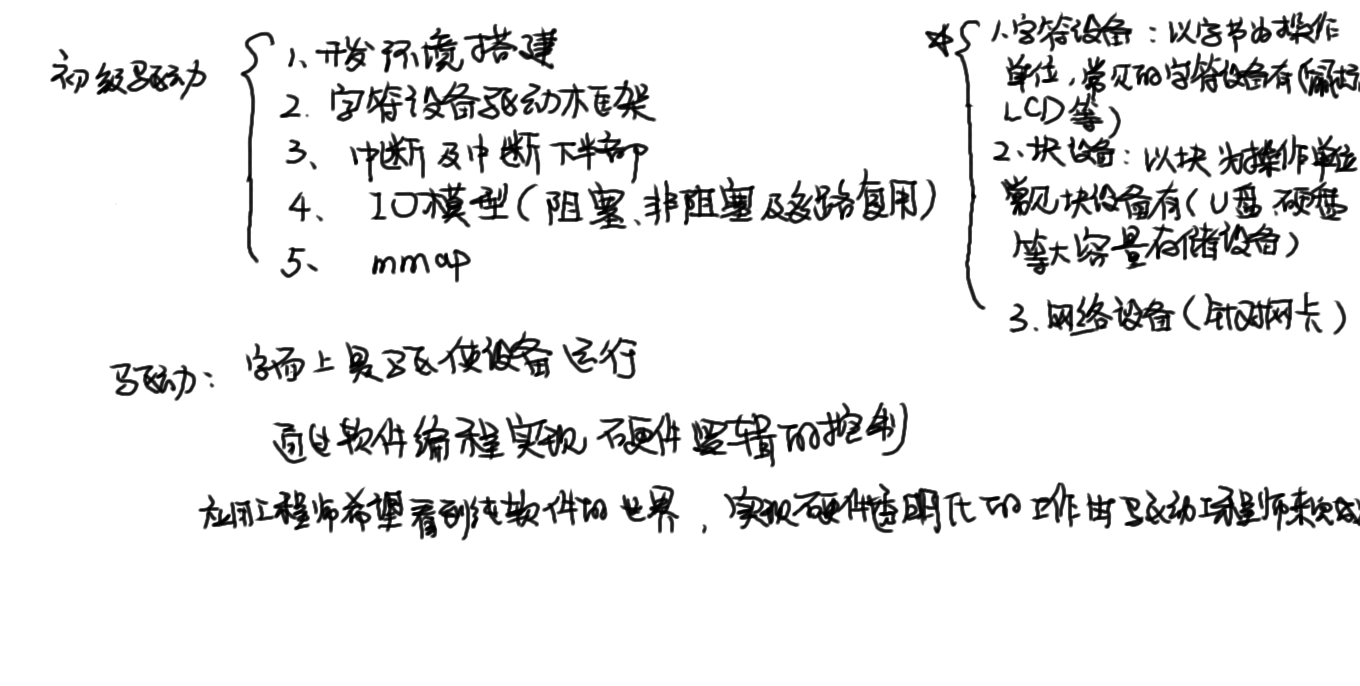 初级驱动
1、开发环境搭建
2. 字符设备驱动框架
3、中断及中断下半部
4、IO模型(阻塞、非阻塞及多路复用)
5、mmap
☆ 1.字符设备:以字节为操作
单位,常见的字符设备有(
LCD等)
2、块设备:以块为操作单位
常见块设备有(U盘、硬盘
等大容量存储设备)
3.网络设备(针对网卡)
驱动:字面上是驱使设备运行
通过软件编程实现硬件逻辑的控制
应用工程师希望看到纯软件的世界,实现硬件透明化的工作由驱动工程师来完成